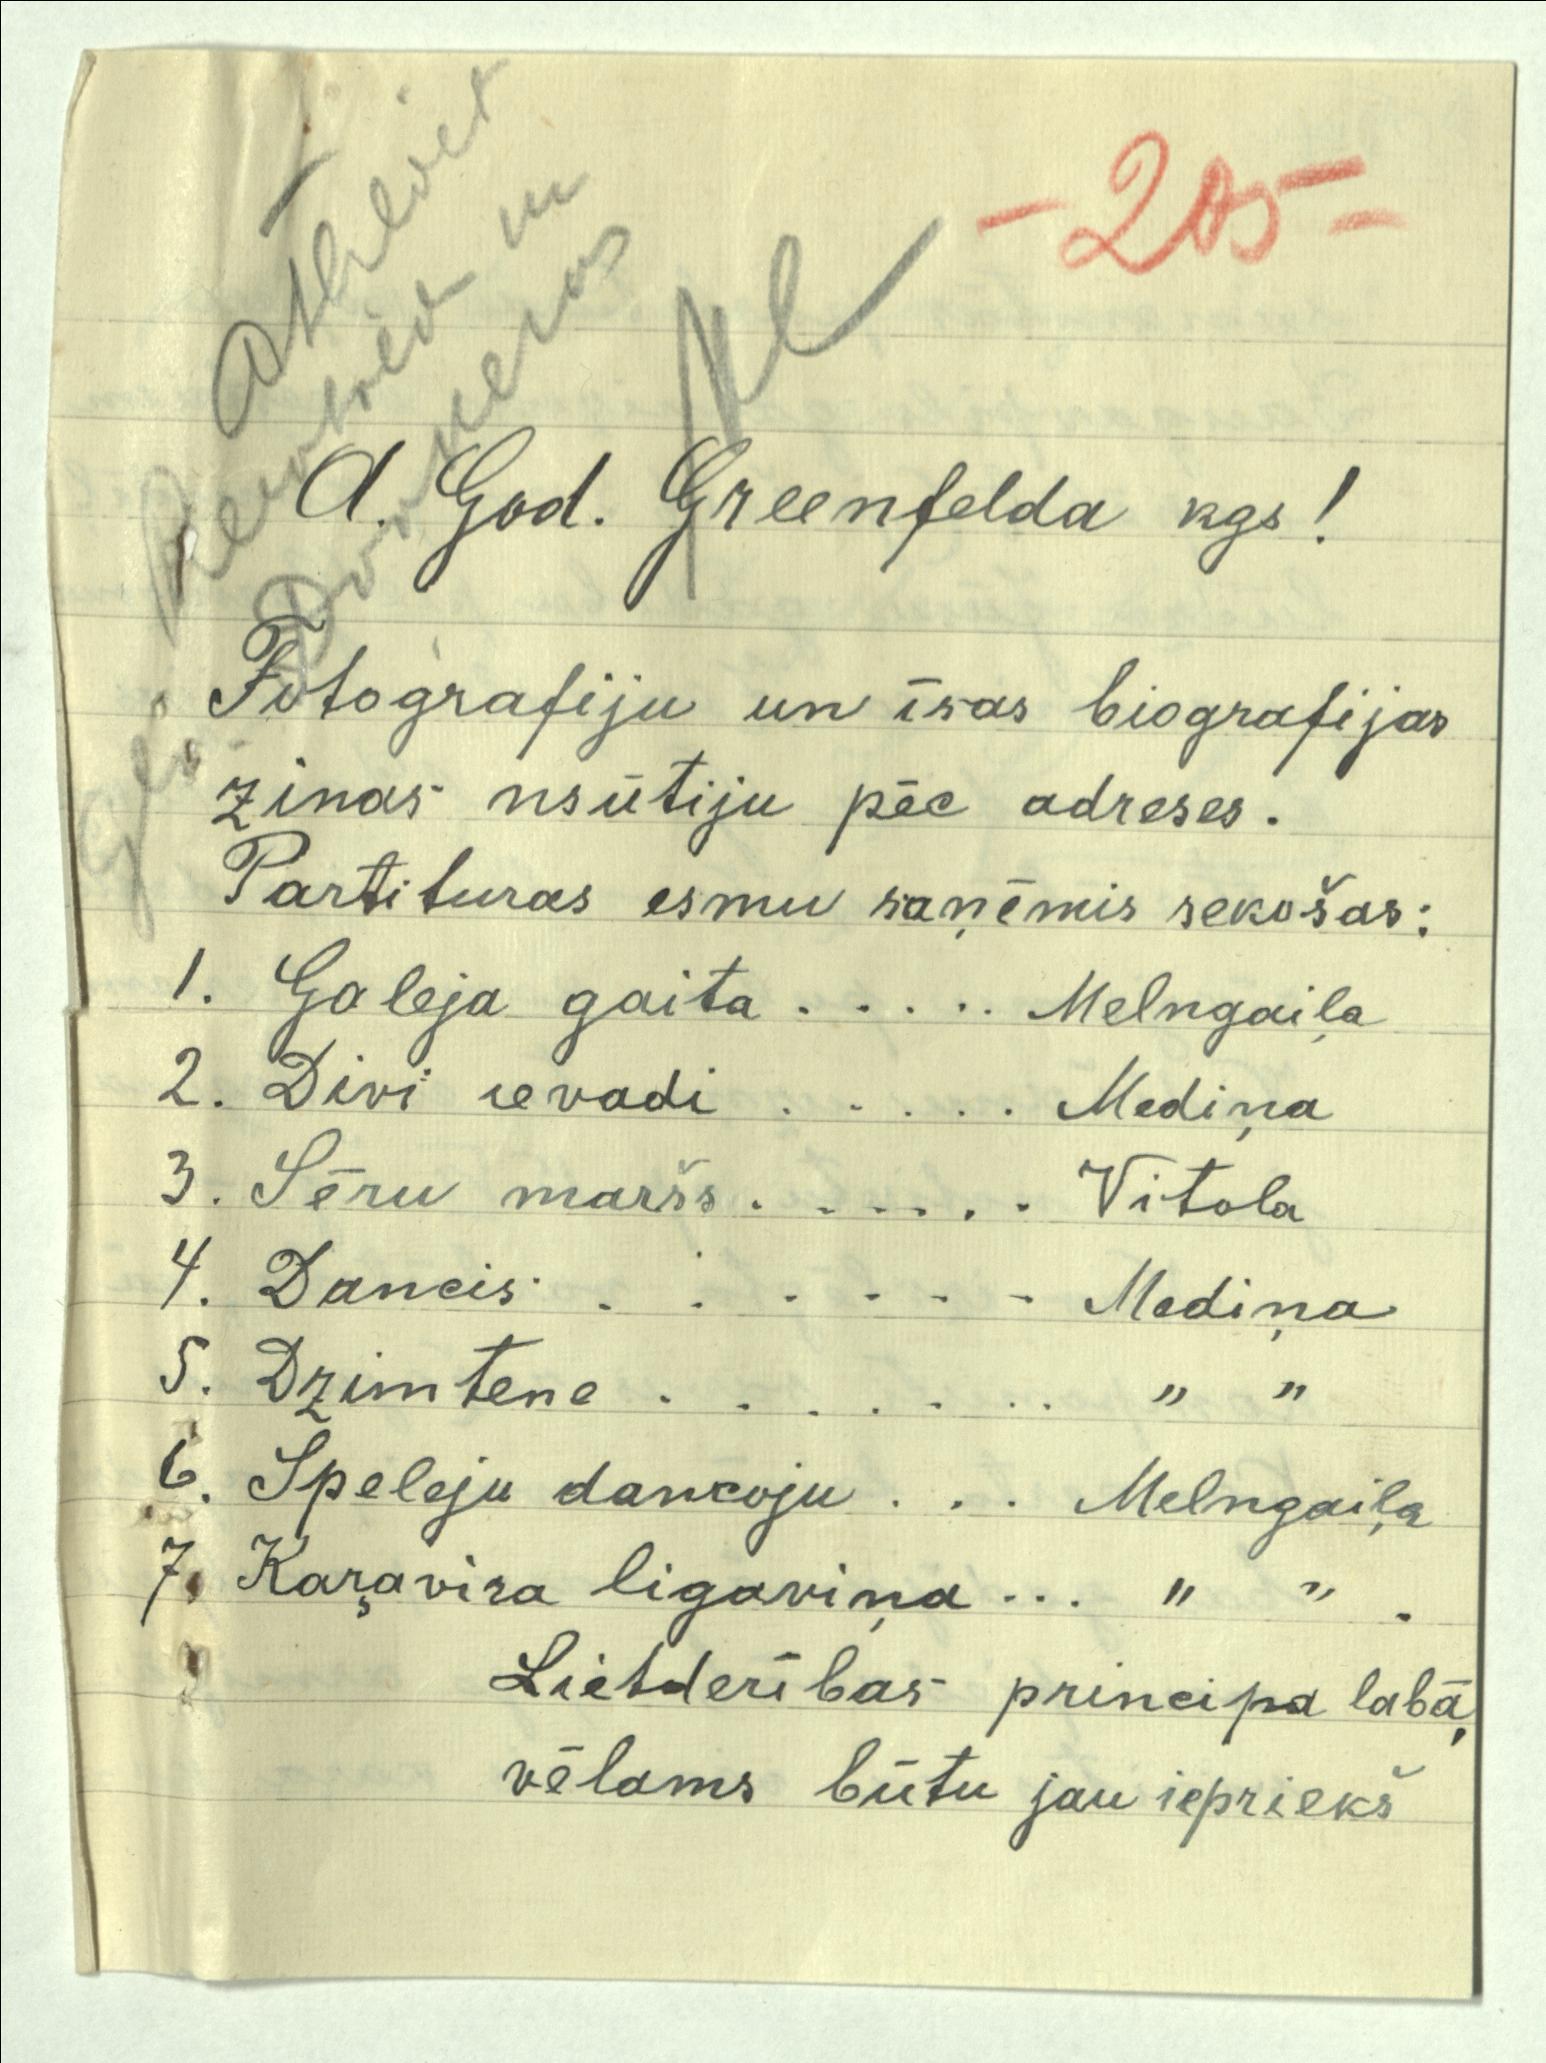 -205-
A. God. Greenfelda kgs!
Fotografiju un īsas biografijas
zinas nsūtiju pēc adreses.
Partituras esmu saņēmis sekošas:
1. Goleja gaita ..... Melngaiļa
2. Divi ievadi ..... Mediņa
3. Sēru maršs ...... Vitola
4. Dancis ....... Mediņa
5. Dzimtene ....... " "
6. Speleju dancoju ... Melngaiļa
7. Kaŗavira ligaviņa ... " " .
Lietderības principa labā,
vēlams būtu jau iepriekš